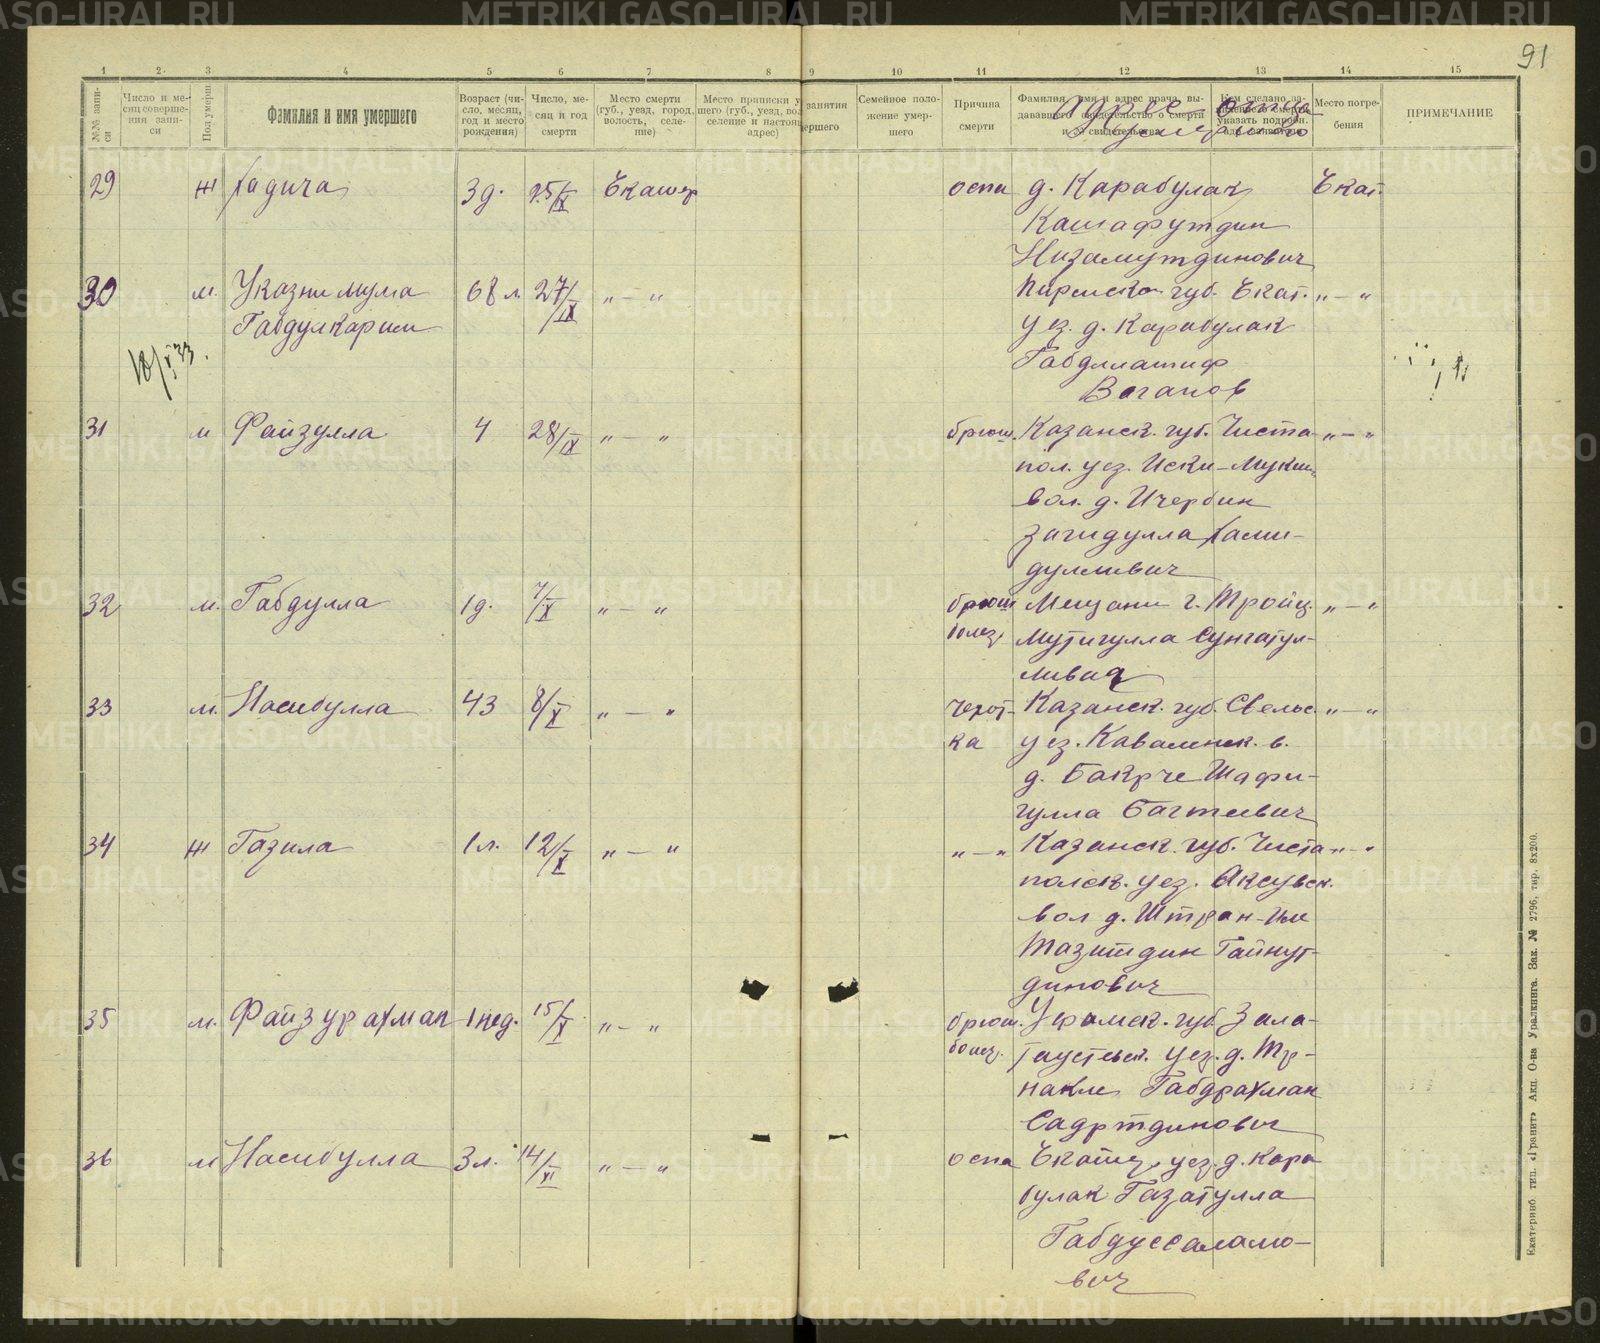 91
1 2 3 4 5 6 7 8 9 10 11 12 13 14 15
№№ запи-
си
Число и ме-
сяц соверше-
ния запи-
си
Пол умерш.
Фамилия и имя умершего
Возраст (чи-
сло, месяц,
год и место
рождения)
Число, ме-
сяц и год
смерти
Место смерти
(губ., уезд, город,
волость, селе-
ние)
Место приписки у
шего (губ., уезд, вол
селение и настоящ
адрес)
занятия
мершего
Семейное поло-
жение умер-
шего
Причина
смерти
Фамилия, имя и адрес врача, вы-
дававшего свидетельство о смерти
и № свидетельства
Адрес отца
Кем сделано за-
указать подробн.
Место погре-
бения
ПРИМЕЧАНИЕ
29 ж Хадича 3 д. 25/IX Екатер оспа д. Карабулак Екат.
Кашафутдин
Низамутдинович
30 м. Указни мулла 68 л. 27/IX „ — „ Пермско губ. Екат. „ — „
Габдулкарим уез. д. Карабулак
18/V 33. Габдллатиф
Ваганов
31 м Файзулла 4 28/IX „ — „ брюш. Казанск. губ. Чиста- „ — „
пол. уез. Иски-Мукши
вол. д. Ичербин
Загидулла Хами-
дуллович
32 м. Габдулла 1 д. 7/X „ — „ брюш Мещани г. Тройц. „ — „
болез. Мутигулла Сунгатул-
33 м. Насибулла 43 8/X „ — „ Чехот- Казанск. губ. Свельс „ — „
ка уез. Кавалинск. в.
д. Бакрче Шафи-
гулла Багтеевич
34 ж Газила 1 л. 12/X „ — „ „ — „ Казанск. губ. Чиста „ — „
полск. уез. Аксувск.
вол д. Штран-Или
Тазитдин Гайнут-
динович
35 м. Файзурахман 1 нед. 15/X „ — „ брюш. Уфимск. губ Зала-
болез. тоустовск. уез. д. Тр-
накли Габдрахман
Садртдинович
36 м Насибулла 3 л. 14/XI „ — „ оспа Екатер. уез. д. Кара
булак Газатулла
Габдуссаламо-
вич
Екатеринб тип. «Гранит» Акц О-ва Уралкнига. Зак. № 2796, тир. 8х200.
METRIKI.GASO-URAL.RU